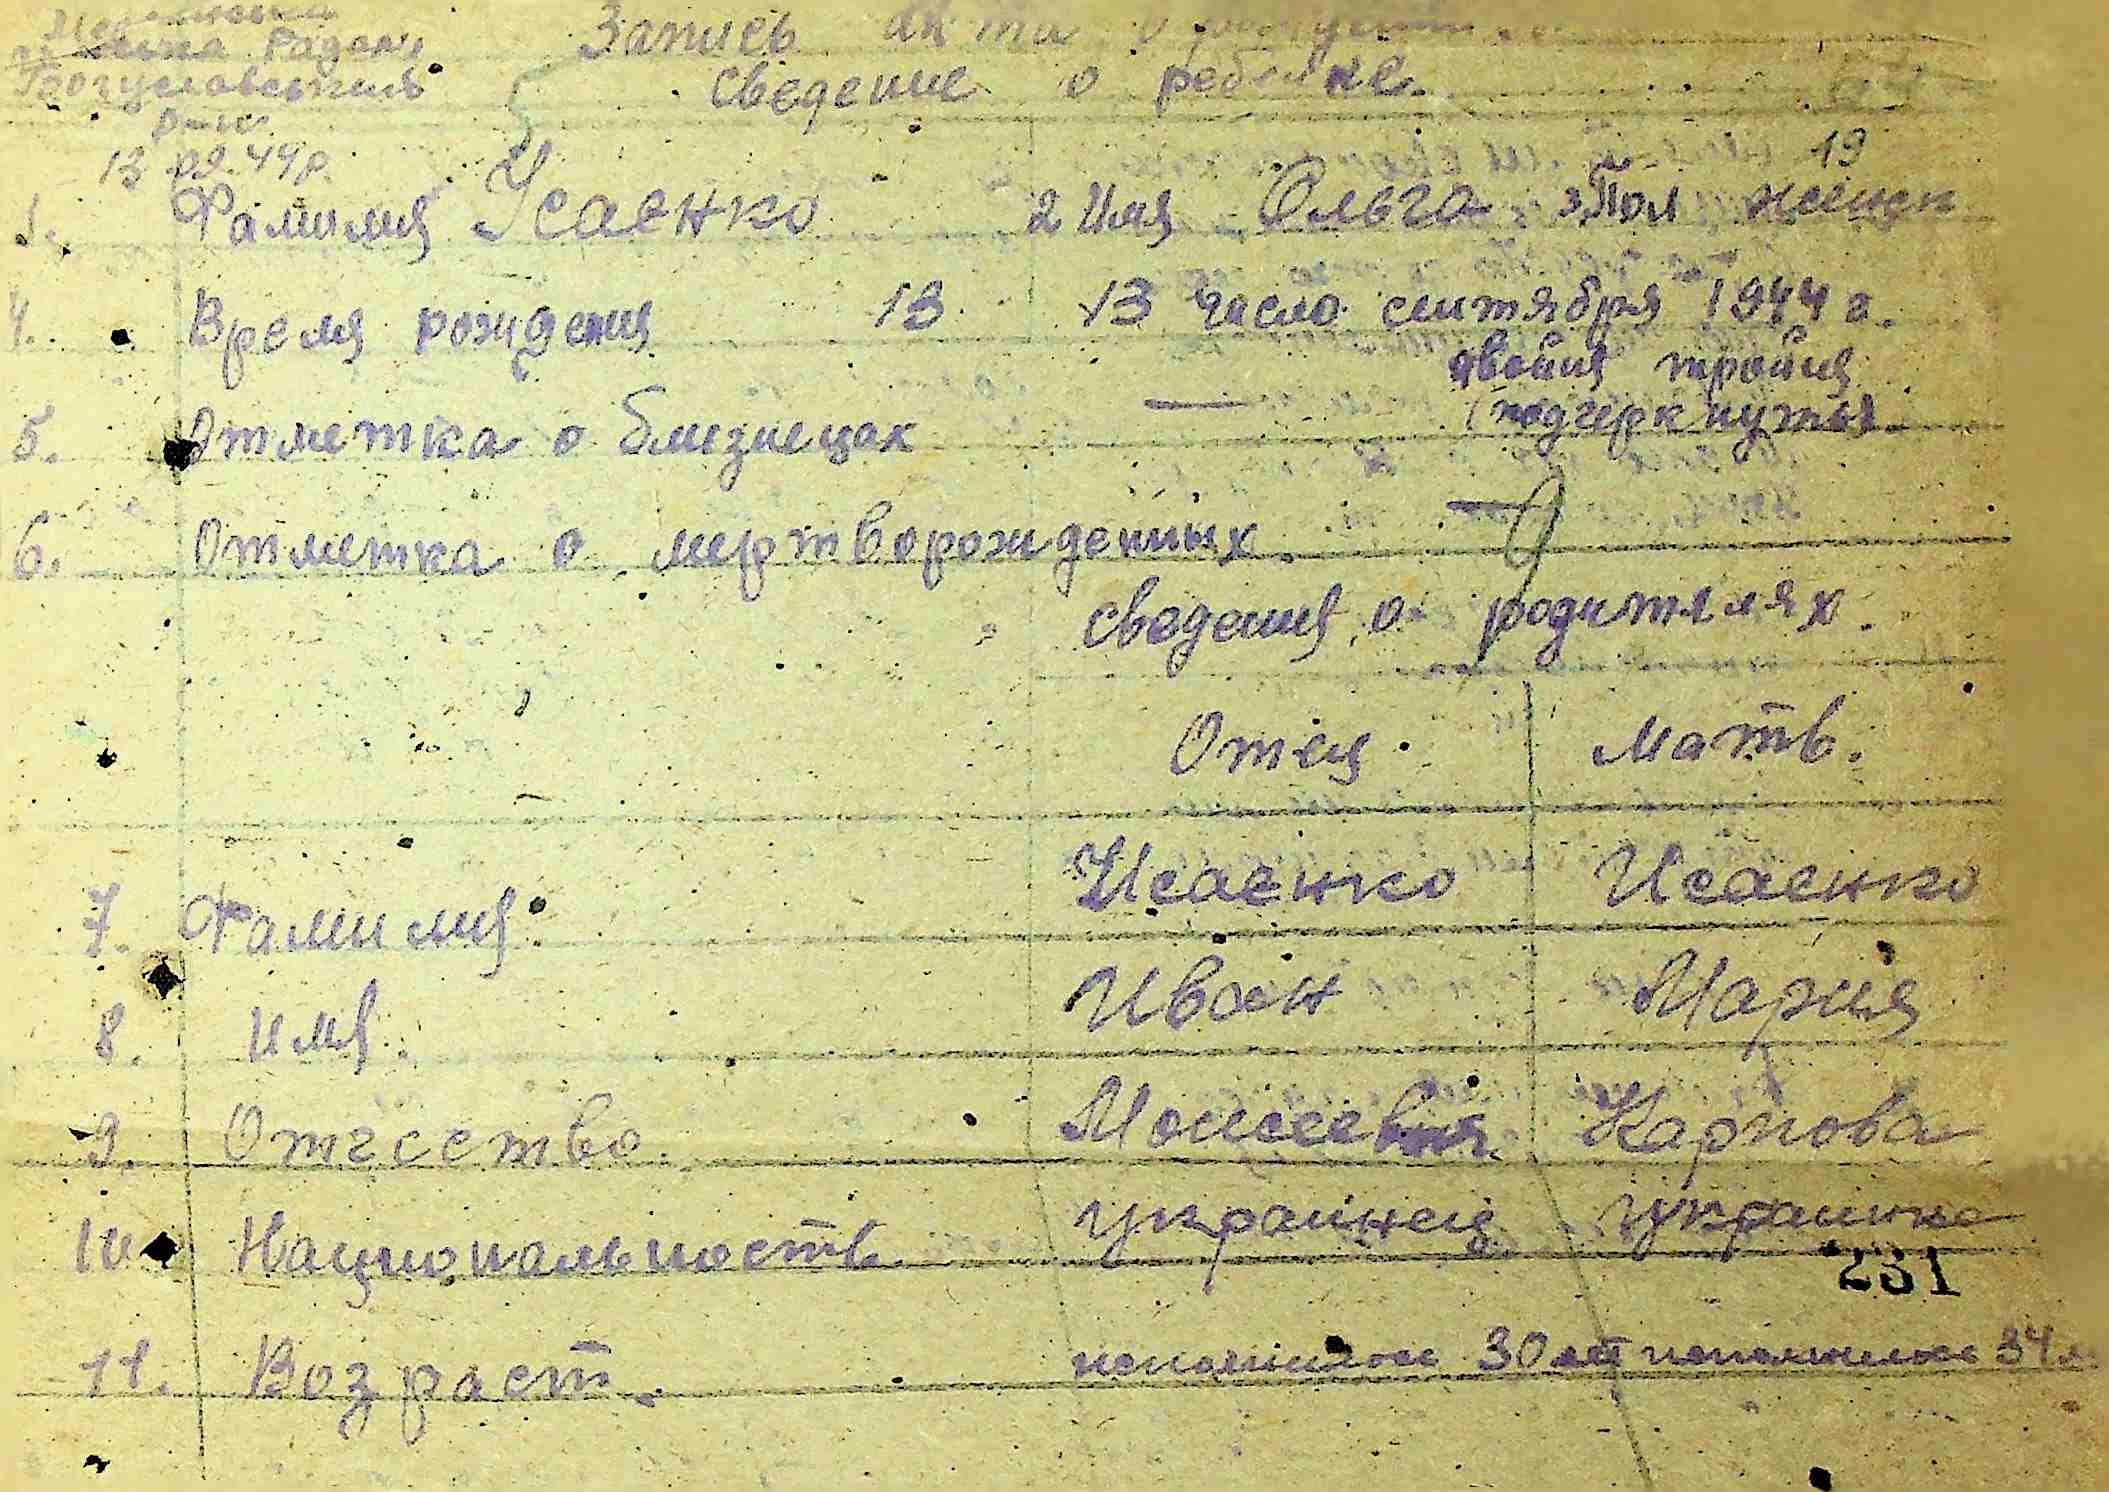 Запись акта о рождении
сведение о ребенке.
Радам
Богуславський
р-н
13 09.44р.
19
1. Фамилия Усаенко 2 Имя Ольга 3 Пол женск
4. Время рождения 13 13 число сентября 1944 г.
двойня тройня
5. Отметка о близнецах — (подчеркнуть)
6. Отметка о мертворожденных —
сведения о родителях.
Отец Мать.
7. Фамилия Исаенко Исаенко
8. Имя. Иван Мария
9. Отчество Моисеевич Карповa
10 Национальность украинец украинка
231
11. Возраст. исполнилось 30 лет исполнилось 34 л.